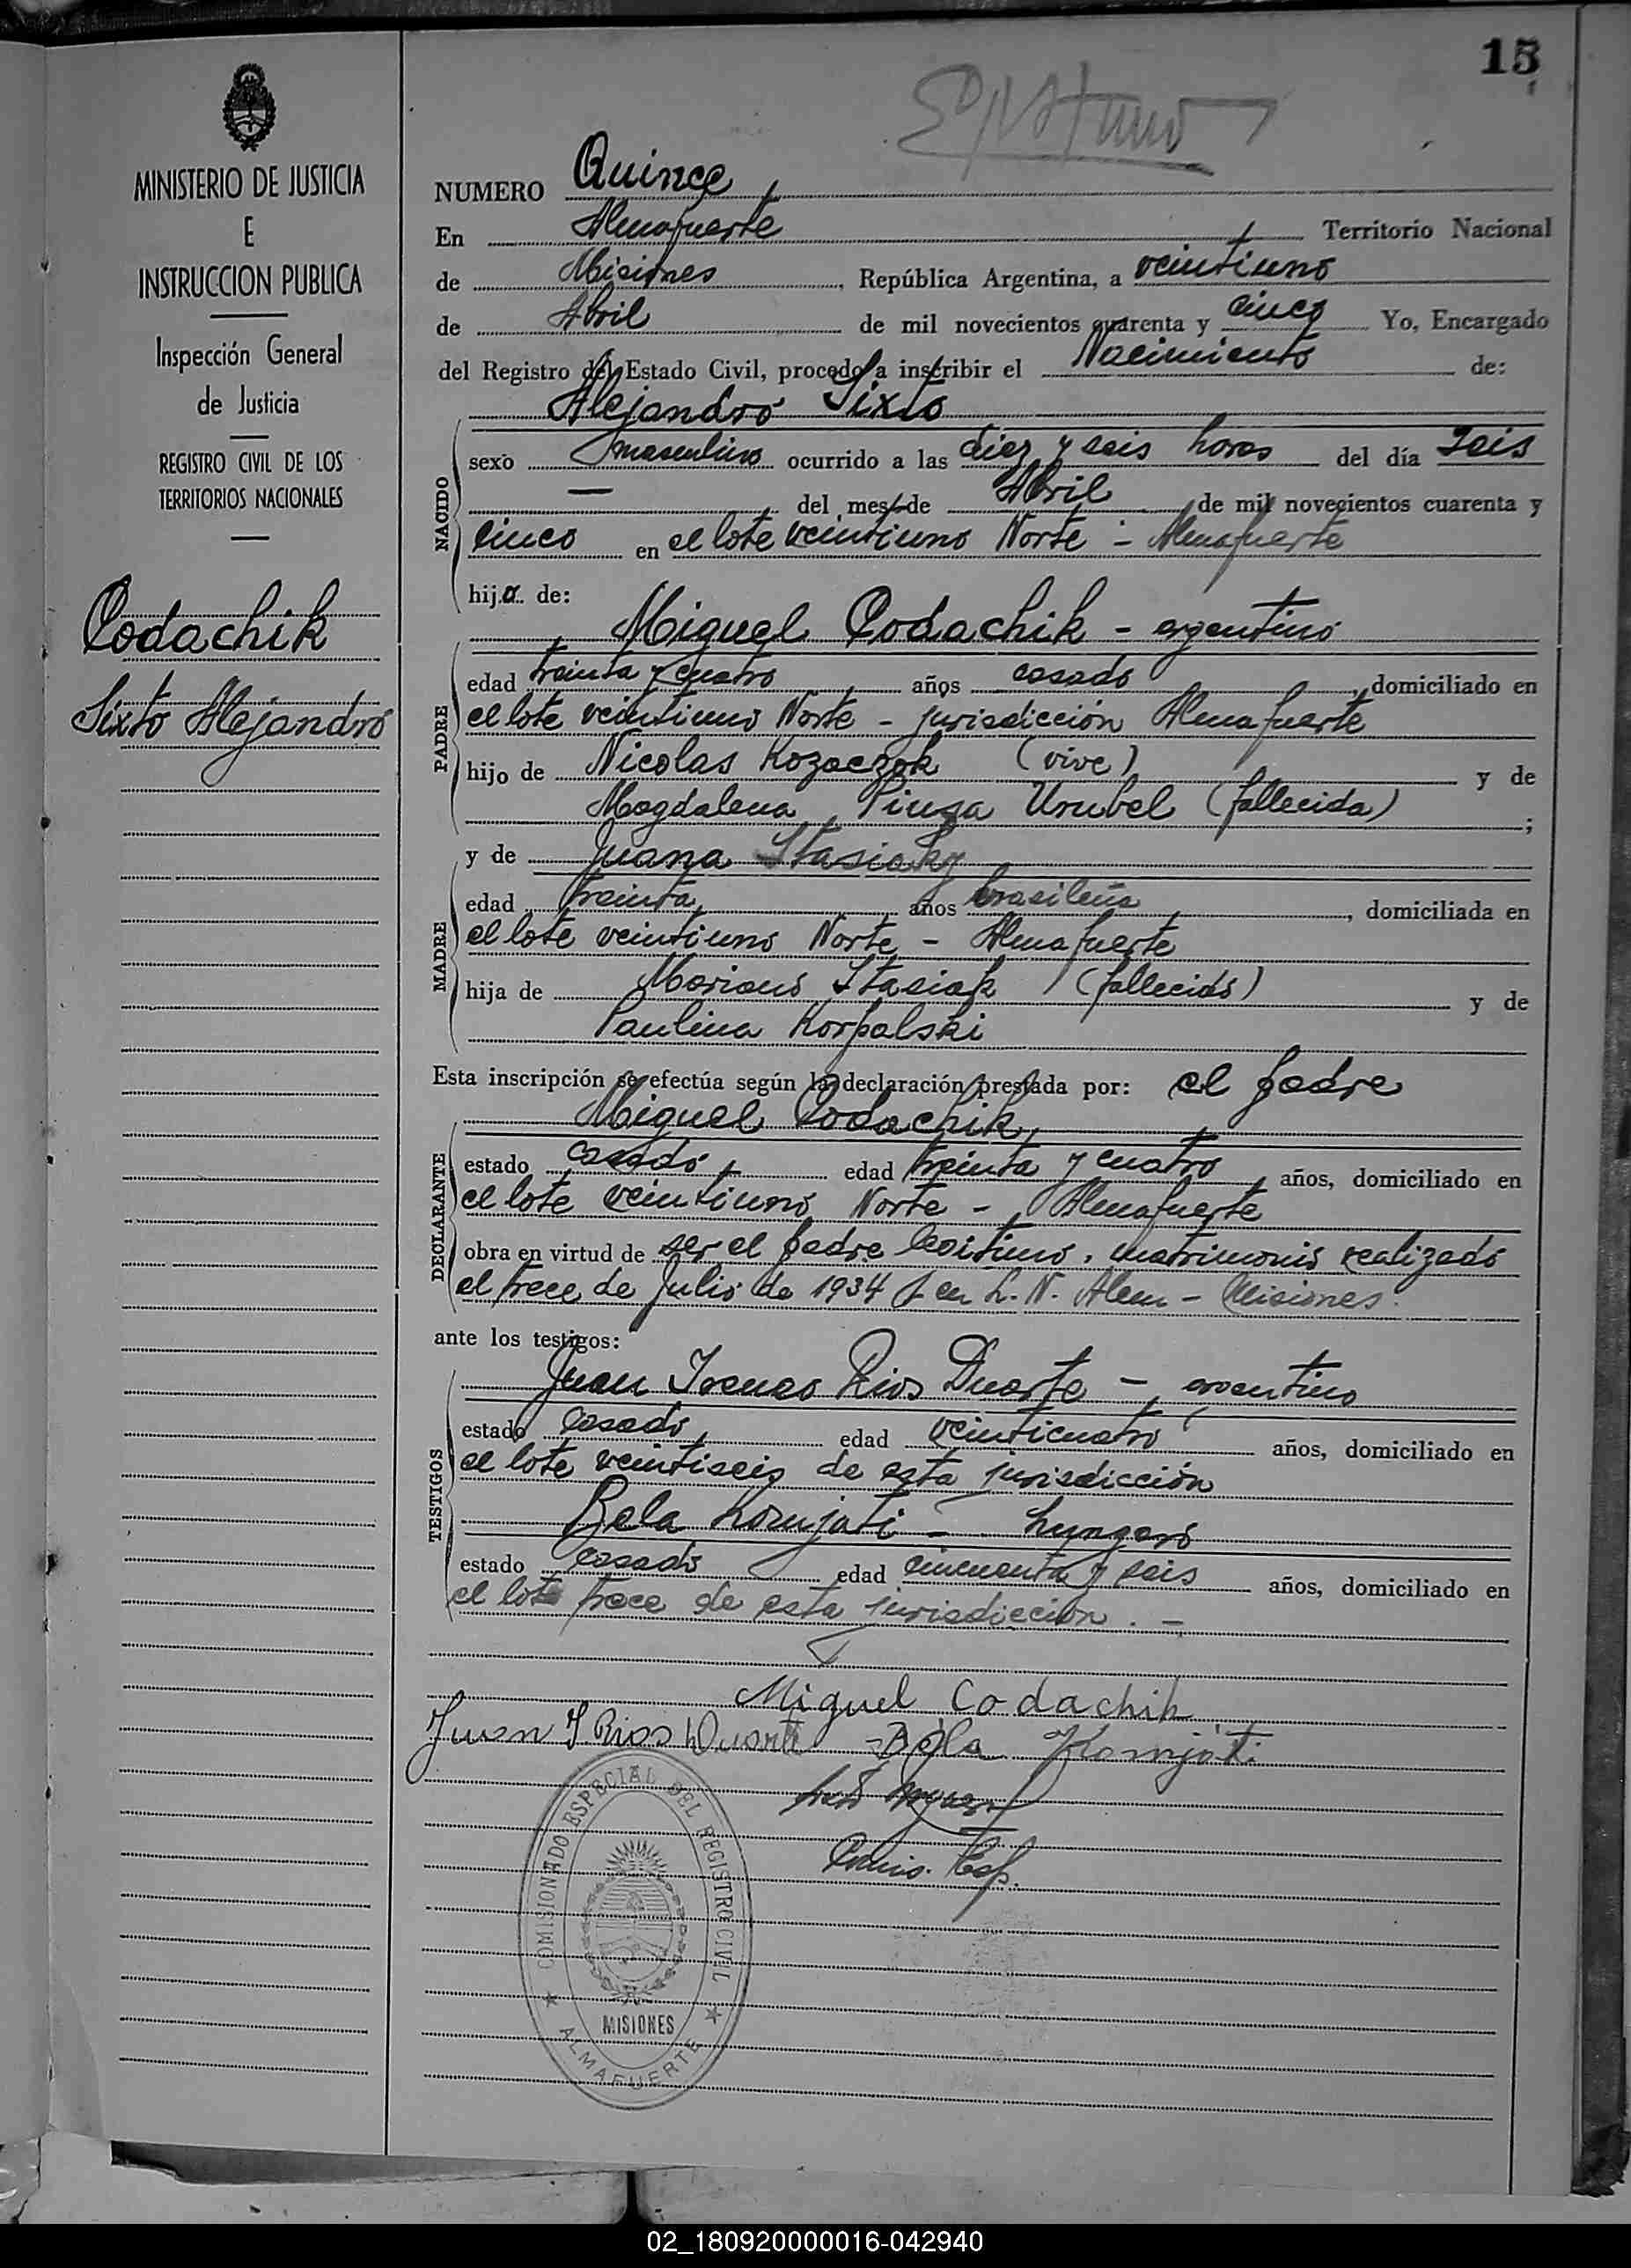 15
MINISTERIO DE JUSTICIA
E
INSTRUCCION PUBLICA
Inspección General
de Justicia
REGISTRO CIVIL DE LOS
TERRITORIOS NACIONALES
Codachik
Sixto Alejandro
NUMERO Quince
En Almafuerte Territorio Nacional
de Misiones, República Argentina, a veintiuno
de Abril de mil novecientos cuarenta y cinco Yo, Encargado
del Registro del Estado Civil, procedo a inscribir el Nacimiento de:
Alejandro Sixto
NACIDO
sexo masculino ocurrido a las diez y seis horas del día seis
— del mes de Abril de mil novecientos cuarenta y
cinco en el lote veintiuno Norte - Almafuerte
hijo de:
Miguel Codachik - argentino
PADRE
edad treinta y cuatro años casado, domiciliado en
el lote veintiuno Norte - jurisdicción Almafuerte
hijo de Nicolas Kozaczok (vive) y de
Magdalena Urubel (fallecida) ;
y de Juana Stasiak
MADRE
edad treinta años brasileña, domiciliada en
el lote veintiuno Norte - Almafuerte
hija de Mariano Stasiak (fallecido) y de
Paulina Korpalski
Esta inscripción se efectúa según la declaración prestada por: el padre
Miguel Codachik,
DECLARANTE
estado casado, edad treinta y cuatro años, domiciliado en
el lote veintiuno Norte - Almafuerte
obra en virtud de ser el padre legitimo, matrimonio realizado
el trece de Julio de 1934 en L. N. Alem - Misiones.
ante los testigos:
TESTIGOS
Juan Ireneo Rios Duarte - argentino
estado casado, edad veinticuatro años, domiciliado en
el lote veintiseis de esta jurisdicción
Bela Komjati - hungaro
estado casado edad cincuenta y seis años, domiciliado en
el lote trece de esta jurisdiccion. -
Miguel Codachik
Juan I Rios Duarte Béla Komjáti
COMISIONADO ESPECIAL DEL REGISTRO CIVIL
MISIONES
ALMAFUERTE
02_180920000016-042940